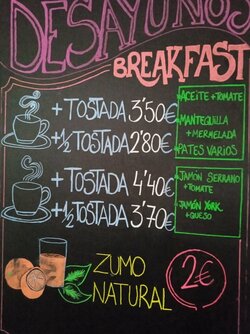 DESAYUNOS
BREAKFAST
+ TOSTADA 3'50€
+ 1/2 TOSTADA 2'80€
• ACEITE + TOMATE
• MANTEQUILLA
+ MERMELADA
• PATES VARIOS
+ TOSTADA 4'40€
+ 1/2 TOSTADA 3'70€
• JAMÓN SERRANO
+ TOMATE
• JAMÓN YORK
+ QUESO
ZUMO
NATURAL
2€